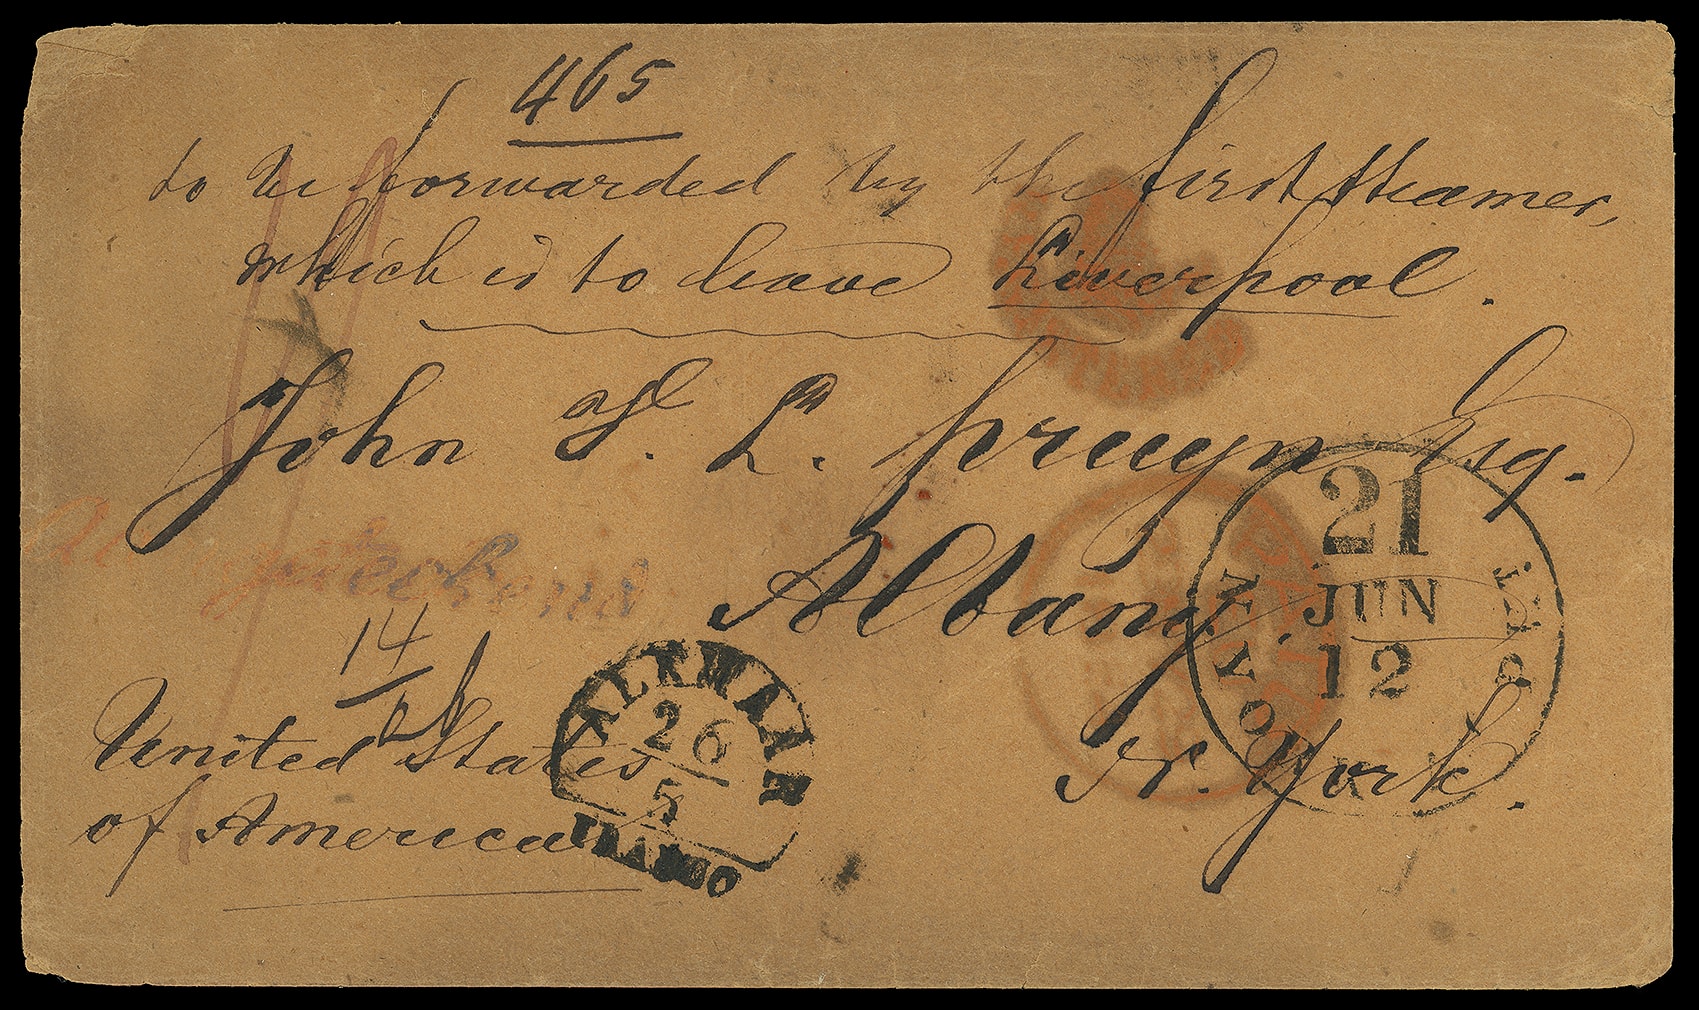 465
to be forwarded by the first steamer,
which is to leave Liverpool.
John V. L. Pruyn Esq.
Albany.
14
United States
of America
N. York.
ALKMAAR
26
5
FRANCO
N. YORK
21
JUN
12